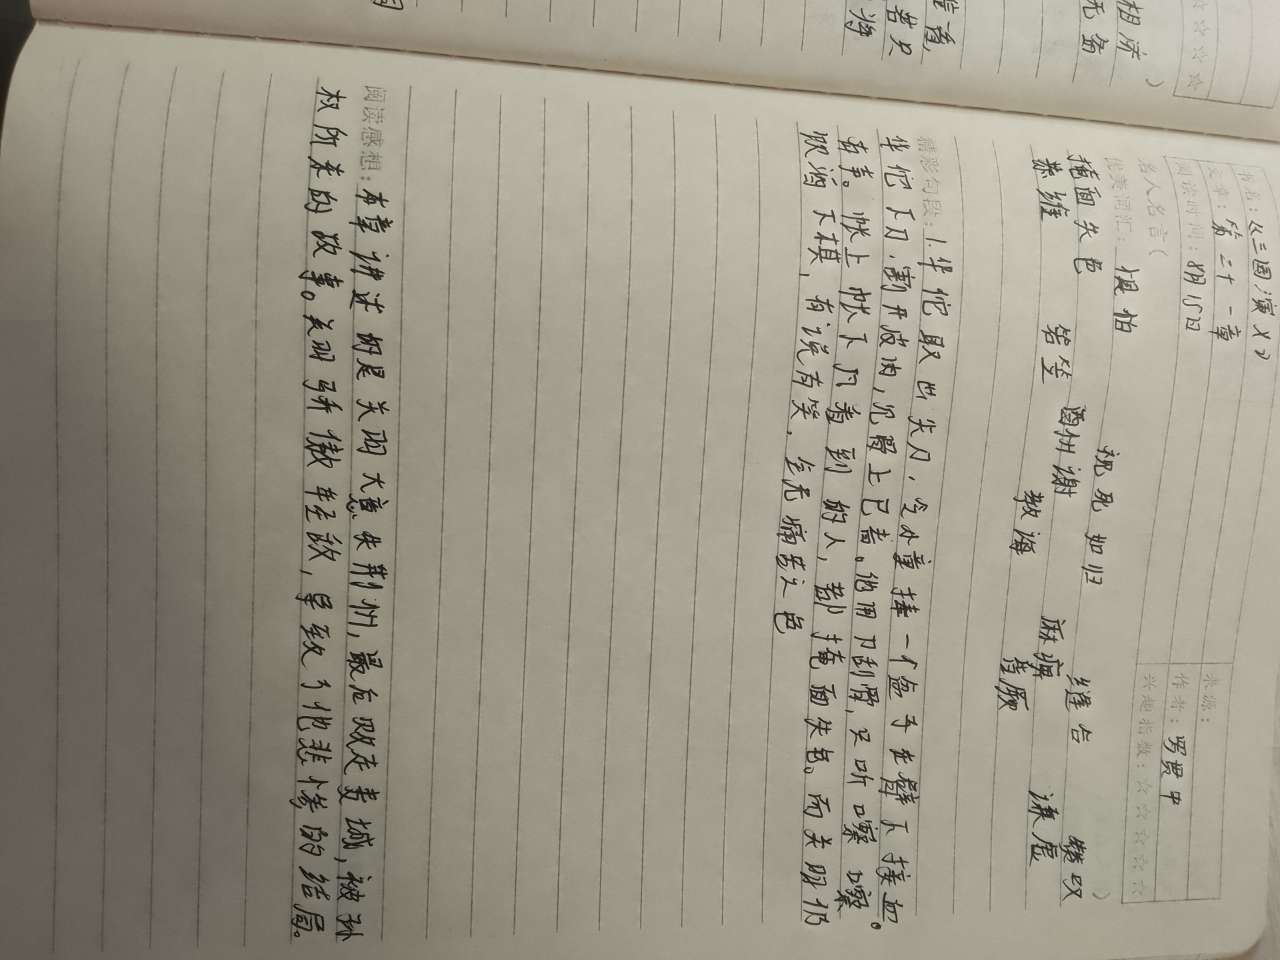 相济
无备
)
☆☆☆☆
若只
书名:《三国演义》
文章:第二十一章
阅读时间:8月15日
来源:
作者:罗贯中
兴趣指数:☆☆☆☆☆
名人名言( )
优美词汇:惧怕 视死如归 缝合 叹
掩面失色 酬谢 麻痹 谦虚
恭维 答 教诲
精彩句段:1.华佗取出尖刀,令小童捧一个盆子在臂下接血。
华佗下刀,割开皮肉,见骨上已青。他用刀刮骨,只听嚓嚓
有声。帐上帐下凡看到的人,都掩面失色。而关羽仍
饮酒下棋,有说有笑,全无痛苦之色
阅读感想:本章讲述的是关羽大意失荆州,最后败走麦城,被孙
权所杀的故事。关羽骄傲轻敌,导致了他悲惨的结局。